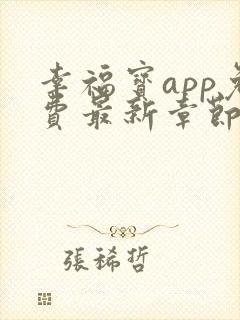 幸福寶app免
費最新章節
張稀哲